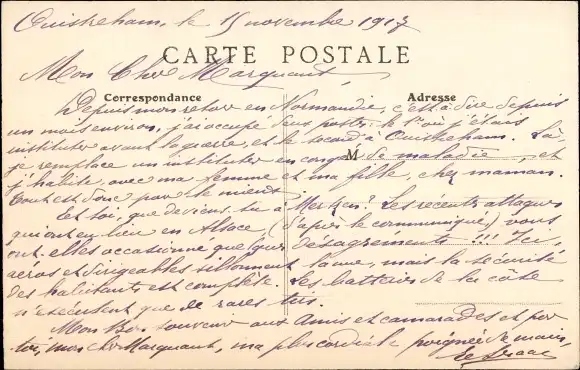 Ouistreham, le 15 novembre 1917
CARTE POSTALE
Mon Cher Marquant,
Correspondance
Adresse
Depuis mon retour en Normandie, c'est à dire depuis
un mois environ, j'ai occupé deux postes: le 1er où j'étais
instituteur avant la guerre, et le second à Ouistreham. Là
je remplace un instituteur en congé de maladie, et
M
j'habite, avec ma femme et ma fille, chez maman.
Tout est donc pour le mieux
Et toi, que deviens-tu à Mertzen? Les recentes attaques
qui ont eu lieu en Alsace, (d'après le communiqué) vous
ont-elles occasionné quelques désagrements!!! Ici,
aeros et dirigeables sillonnent la nue, mais la sécurité
des habitants est complète. Les batteries de la côte
n'exécutent que de rares tirs.
Mon Bon souvenir aux Amis et camarades et pour
toi, mon cher Marquant, ma plus cordiale poignée de mains,